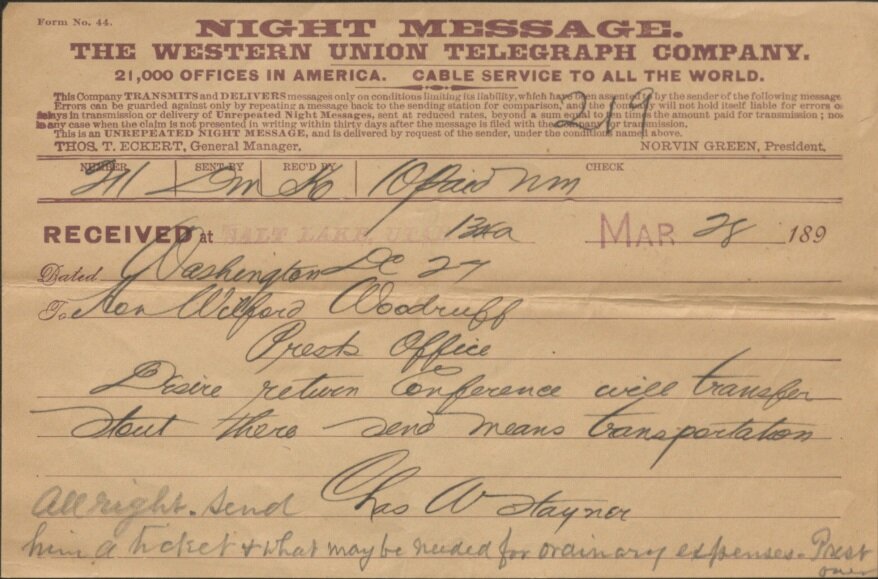 Form No. 44.
NIGHT MESSAGE.
THE WESTERN UNION TELEGRAPH COMPANY.
21,000 OFFICES IN AMERICA. CABLE SERVICE TO ALL THE WORLD.
This Company TRANSMITS and DELIVERS messages only on conditions limiting its liability, which have been assented to by the sender of the following message
Errors can be guarded against only by repeating a message back to the sending station for comparison, and the Company will not hold itself liable for errors o
delays in transmission or delivery of Unrepeated Night Messages, sent at reduced rates, beyond a sum equal to ten times the amount paid for transmission; no
in any case when the claim is not presented in writing within thirty days after the message is filed with the Company for transmission.
This is an UNREPEATED NIGHT MESSAGE, and is delivered by request of the sender, under the conditions named above.
THOS. T. ECKERT, General Manager. NORVIN GREEN, President.
219
NUMBER SENT BY REC'D BY CHECK
10 Paid Nm
RECEIVED at SALT LAKE UTAH MAR 28 189
Dated Washington DC 27
To Hon Wilford Woodruff
Prests Office
Desire return Conference will transfer
stout there send means transportation
Chas W Stayner
All right. Send
him a ticket & what may be needed for ordinary expenses. Prest